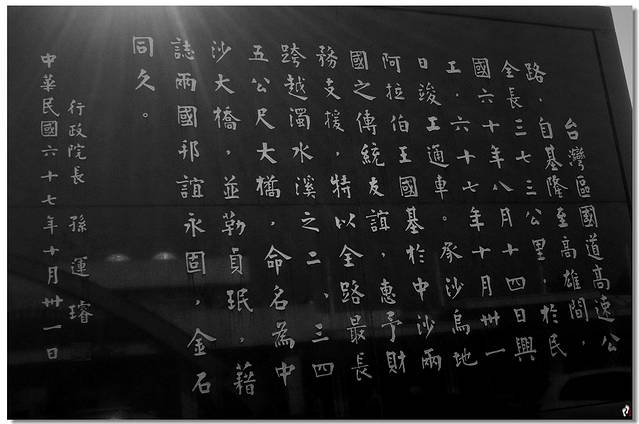 台灣區國道高速公
路，自基隆至高雄間，
全長三七三公里，於民
國六十年八月十四日興
工，六十七年十月卅一
日竣工通車。承沙烏地
阿拉伯王國基於中沙兩
國之傳統友誼，惠予財
務支援，特以全路最長
跨越濁水溪之二、三四
五公尺大橋，命名為中
沙大橋，並勒貞珉，藉
誌兩國邦誼永固，金石
同久。
行政院長 孫運璿
中華民國六十七年十月卅一日